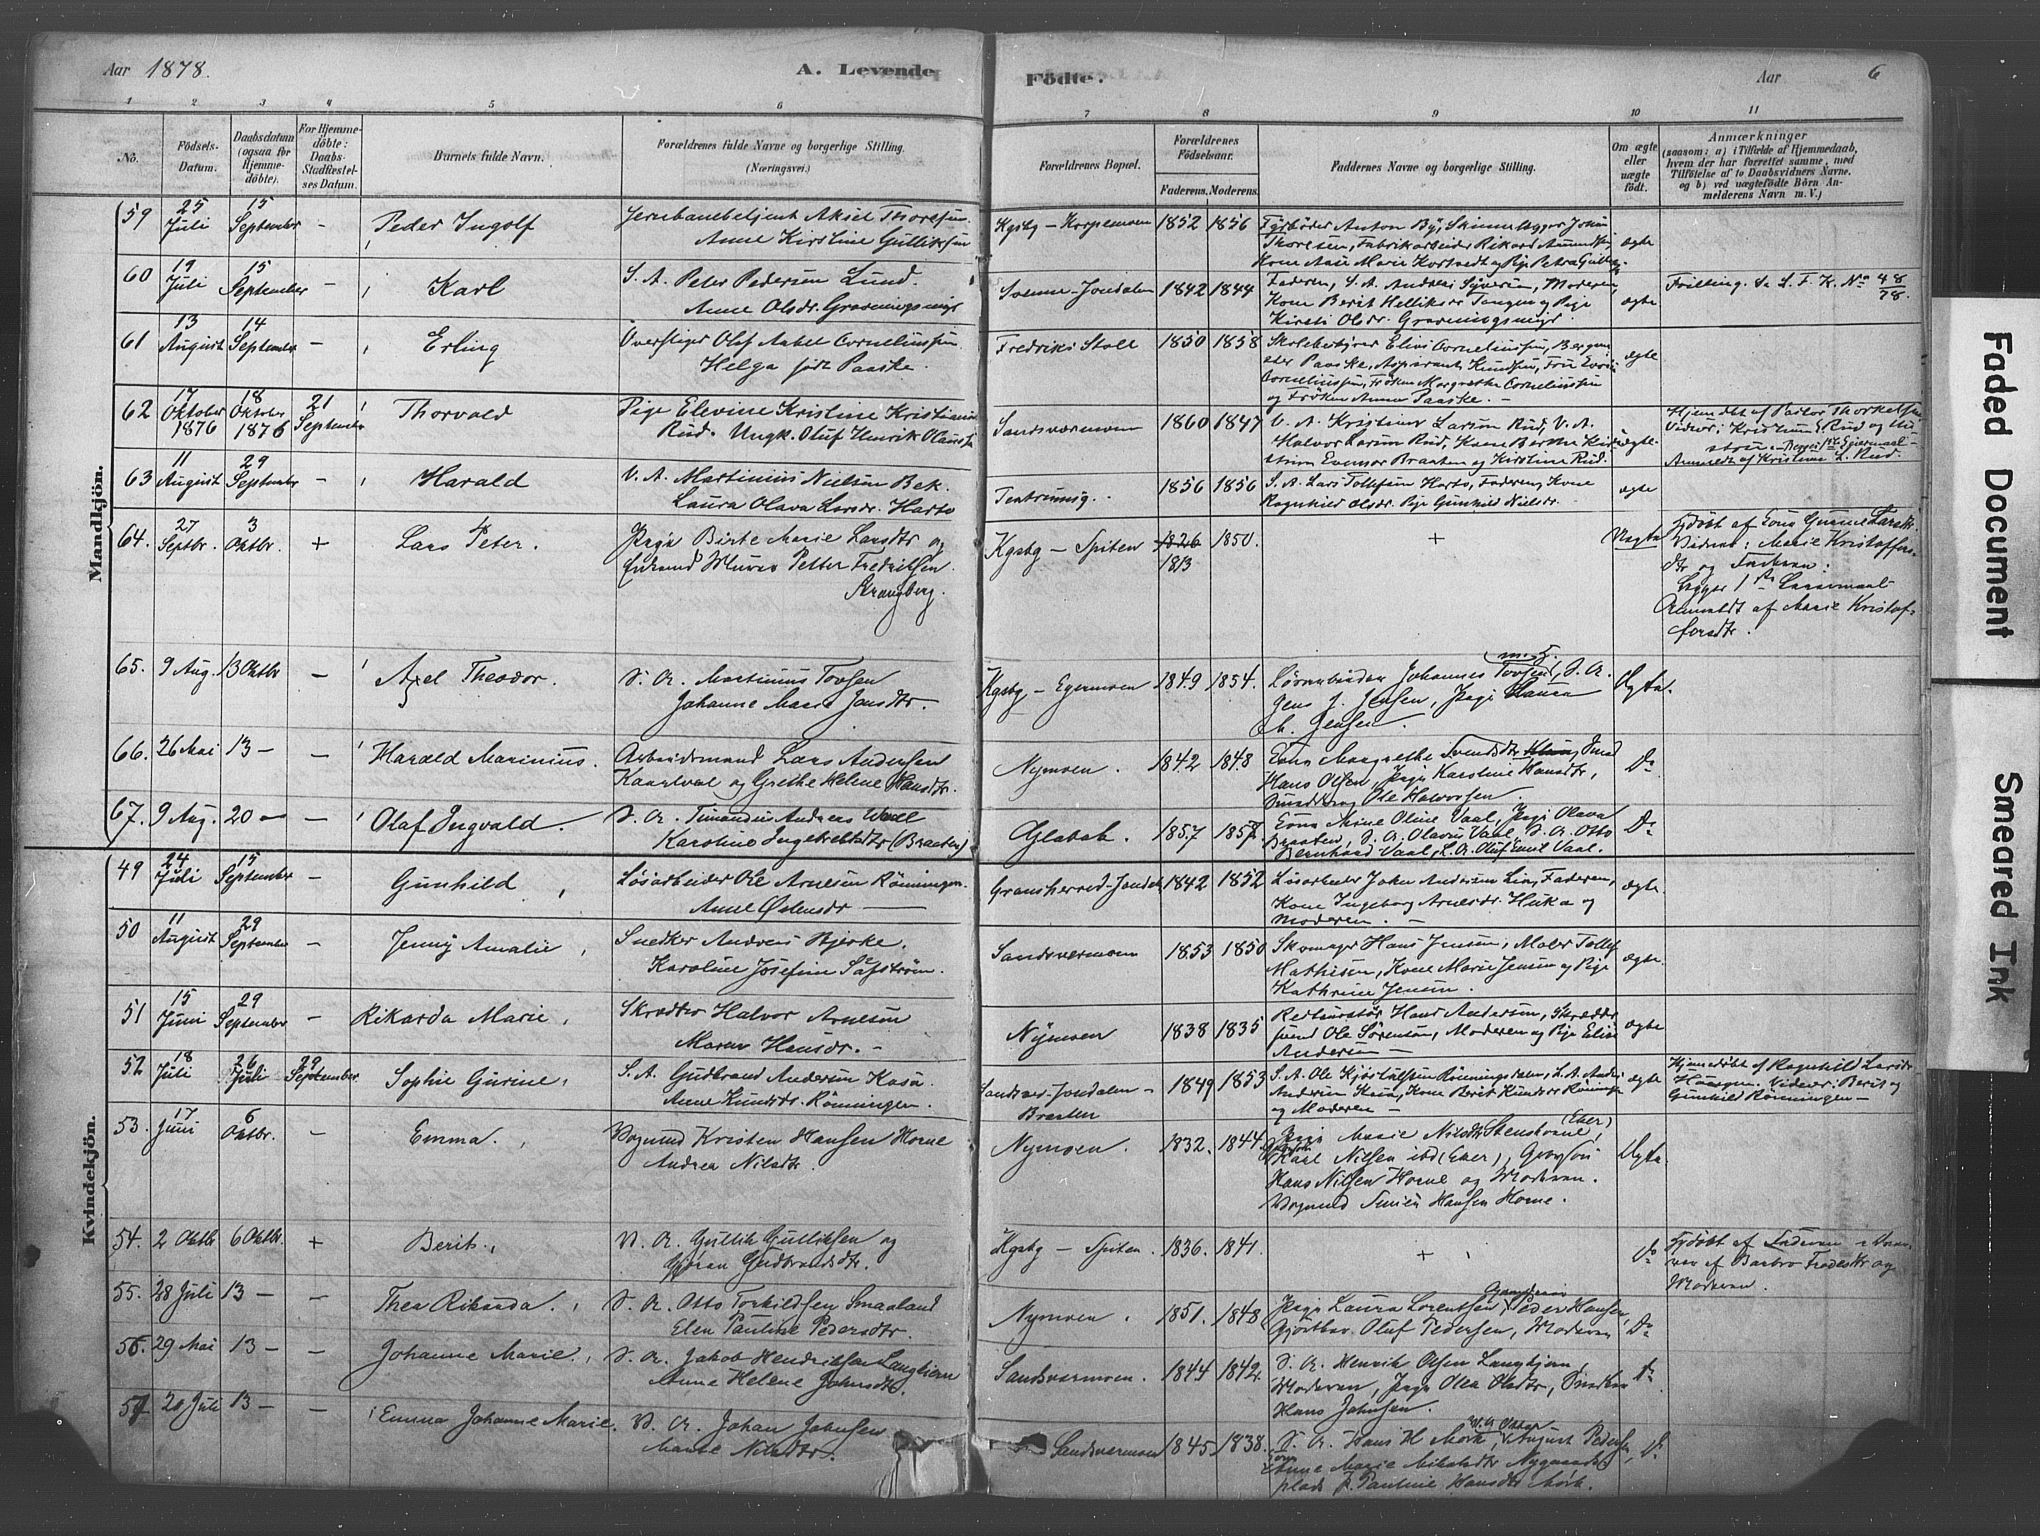 Aar 1878. A. Levende Födte. Aar 6
1 2 3 4 5 6 7 8 9 10 11
No. Födsels-Datum. Daabsdatum (ogsaa for Hjemmedöbte). For Hjemmedöbte: Daabs-Stadfæstelses Datum. Barnets fulde Navn. Forældrenes fulde Navne og borgerlige Stilling. (Næringsvei.) Forældrenes Bopæl. Forældrenes Födselsaar. Faderens. Moderens. Faddernes Navne og borgerlige Stilling. Om ægte eller uægte födt. Anmærkninger (saasom: a) i Tilfælde af Hjemmedaab, hvem der har forrettet samme, med Tilföielse af to Daabsvidners Navne, og b) ved uægtefödte Börn Anmelderens Navn m. V.)
Mandkjön.
59 25 Juli 15 September - Peder Ingolf Jernbanebetjent Aksel Thoresen
Anne Kirstine Gulliksen Kgsbg - 1852 1856 Fyrböder Anton By,
Thoresen, Fabrikarbeider Rikard Amundsen
Kone Marie ægte
60 19 Juli 15 September - Karl S. A. Peter Pedersen Lund.
Anne Olsdr. Gravningsmyr Svene-Jondalen 1842 1844 Faderen, S. A. Andreas Syversen, Moderen
Kone Berit Helliksdr Tangen og Pige
Kirsti Olsdr. Gravningsmyr. ægte Tvilling. Se L. F. K. No 48/78.
61 13 August 14 September - Erling Overstiger Olaf Aabel Corneliussen
Helga född Paaske. Fredriks Stoll 1850 1858 Skolebestyrer Elias Corneliussen, Bergmester
Paaske, Aspirant Knudsen, Fru
Corneliussen, Fröken Margrethe Corneliussen
og Fröken Anna Paaske. - ægte
62 17 Oktober 1876 18 Oktober 1876 21 September Thorvald Pige Elevine Kristine Kristiansd
Rud. Ungk. Oluf Henrik Olaussen Sandsværmoen 1860 1847 V. A. Kristian Larsen Rud, V. A.
Halvor Larsen Rud, Kone Berthe
Evensdr Braaten og Kirstine Rud. uægte. Hjemdöbt af Pastor Thorkelsen
Vidner: Kristian L. Rud og
Begges 1ste Leiermaal -
Anmeldt af Kristian L. Rud.
63 11 August 29 September - Harald V. A. Martinius Nielsen Bek.
Laura Olava Larsdr. Harto 1856 1856 S. A. Lars Tollefsen Harto, Faderen, Kone
Ragnhild Olsdr. Pige Gunhild Nielsdr. ægte
64. 27 Septbr. 3 Oktbr. + Lars Peter. Pige Birte Marie Larsdtr og
Enkemand Murer Petter Fredriksen
Strangberg. Kgsbg - Spiten 1826 1813 1850. + Uægte Hjdöbt af Kone Gurine Larsdtr.
Vidner: Marie Kristoffers
dtr og Faderen.
Begges 1ste Leiermaal
Anmeldt af Marie Kristof-
fersdtr.
65. 9 Aug. 13 Oktbr - Axel Theodor. S. A. Martinius Tovsen
Johanne Marie Jensdtr. - Kgsbg - Egermoen 1849 1854. Lösarbeider Johannes Tovsen, S. A.
Jens J. Jensen, Pige Laura
M. Jensen. Ægte.
66. 26 Mai 13 - - Harald Marinius. Arbeidsmand Lars Andersen
Kaarlval og Grethe Helene Hansdtr. Nymoen. 1842 1848 Kone Margrethe Svendsdtr, Smed
Hans Olsen, Pige Karoline Hansdtr,
Smeddreng Ole Halvorsen. Do
67. 9 Aug. 20 - - Olaf Ingvald. S. A. Andreas Waal
Karoline Ingebrethsdtr (Braaten) Glabak. 1857 1857 Kone Mine Oline Vaal, Pige Olava
Braaten, S. A. Olavus Vaal, S. A. Otto
Bernhard Vaal, S. A. Oluf Emil Vaal. Do
Kvindekjön.
49 24 Juli 15 September - Gunhild Lösarbeider Ole Arnesen Rönningen.
Anne Östensdr Gransherred-Jondalen 1842 1852 Lösarbeider John Andersen Lia, Faderen,
Kone Ingeborg Arnesdr. Huka og
Moderen. - ægte.
50 11 August 29 September - Jenny Amalie Snedker Andreas Bjerke.
Karoline Josefine Säfström. Sandsværmoen 1853 1850 Skomager Hans Jensen, Maler Tollef
Mathisen, Kone Marie Jensen og Pige
Kathrine Jensen. ægte.
51 15 Juni 29 September - Rikarda Marie Skrædder Halvor Arnesen
Maren Hansdr. - Nymoen 1838 1835 Restauratör Hans Andersen, Skrædder-
svend Ole Sörensen, Moderen og Pige Elise
Andersen - ægte
52 18 Juli 26 Juli 29 September Sophie Gurine S. A. Gudbrand Andersen Kasa.
Anne Knudsdr. Rönningen. Sandsvær-Jondalen-
Braaten 1849 1853 S. A. Ole Kjöstulfsen Rönningsdalen, S. A. Anders
Andersen Kasa, Kone Berit Knudsdr Rönningen
og Moderen - ægte Hjemedöbt af Ragnhild Larsdr
Haugen. Vidner: Berit og
Gunhild Rönningen -
53. 17 Juni 6 Oktbr. - Emma. Vognmd Kristen Hansen Horne
Andrea Nilsdtr. Nymoen. 1832. 1844. Pige Marie Nilsdtr Stensborne, (Eker)
Karl Nilsen ibd (Eker), Gravfoss
Hans Nilsen Horne og Moderen.
Vognmd Simen Hansen Horne. Ægte.
54. 2 Oktbr 6 Oktbr. + Berit. S. A. Gullik Gulliksen og
Göran Gudbrandsdtr. Kgsbg - Spiten. 1836. 1841. + Do Hjdöbt af Faderen i Nærvær
af Barbro Frodesdtr og
Moderen.
55. 28 Juli 13 - - Thea Rikarda. S. A. Otto Torkildsen Smaaland
Elen Pauline Pedersdtr. Nymoen. 1851. 1848. Pige Laura Lorentsen, Peder Hansen,
Gjörtler Oluf Pedersen, Moderen Do
56. 29 Mai 13 - - Johanne Marie. S. A. Jakob Hendriksen Langbjern
Anne Helene Johnsdtr. Sandsværmoen. 1844 1842. S. A. Henrik Olsen Langbjern,
Moderen, Pige Olea Olsdtr, Snedker
Hans Johnsen. Do
57 20 Juli 13 - - Emma Johanne Marie. S. A. Johan Johnsen
Marie Nilsdtr. Sandsværmoen 1845 1838. S. A. Hans H. Mörk, August Pedersen,
Anne Marie Mikelsdtr Nygaards-
plads, P. Pauline Hansdtr Mörk. Do
Faded Document
Smeared Ink